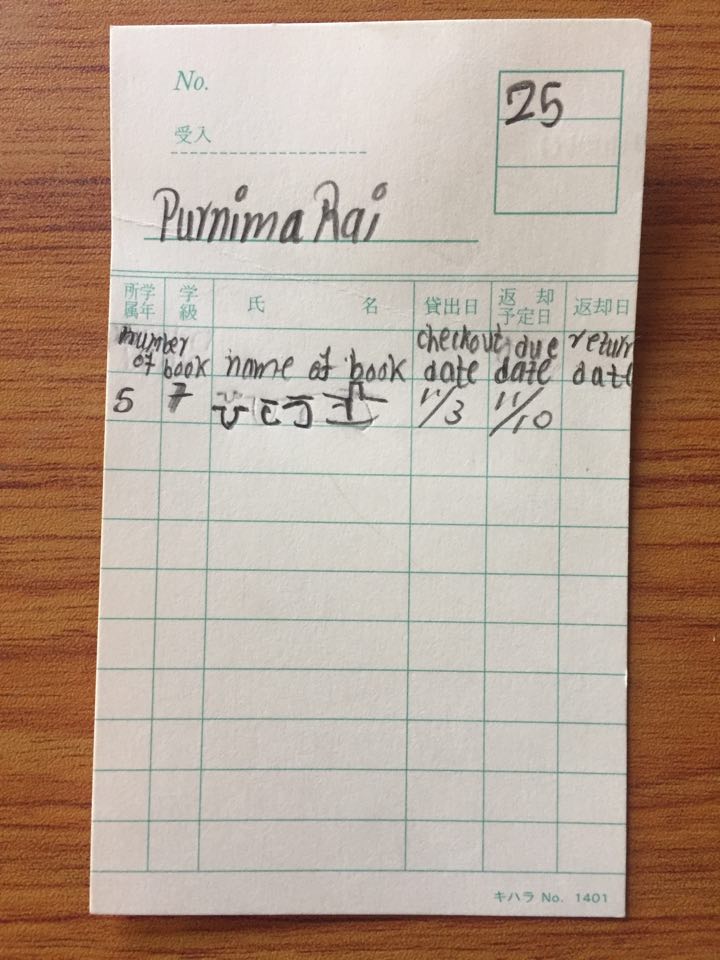 No.
25
受入
Purnima Rai
所属 学年 学級 氏 名 貸出日 返却予定日 返却日
number of book name of book checkout date due date return date
5 7 11/3 11/10
キハラ No. 1401